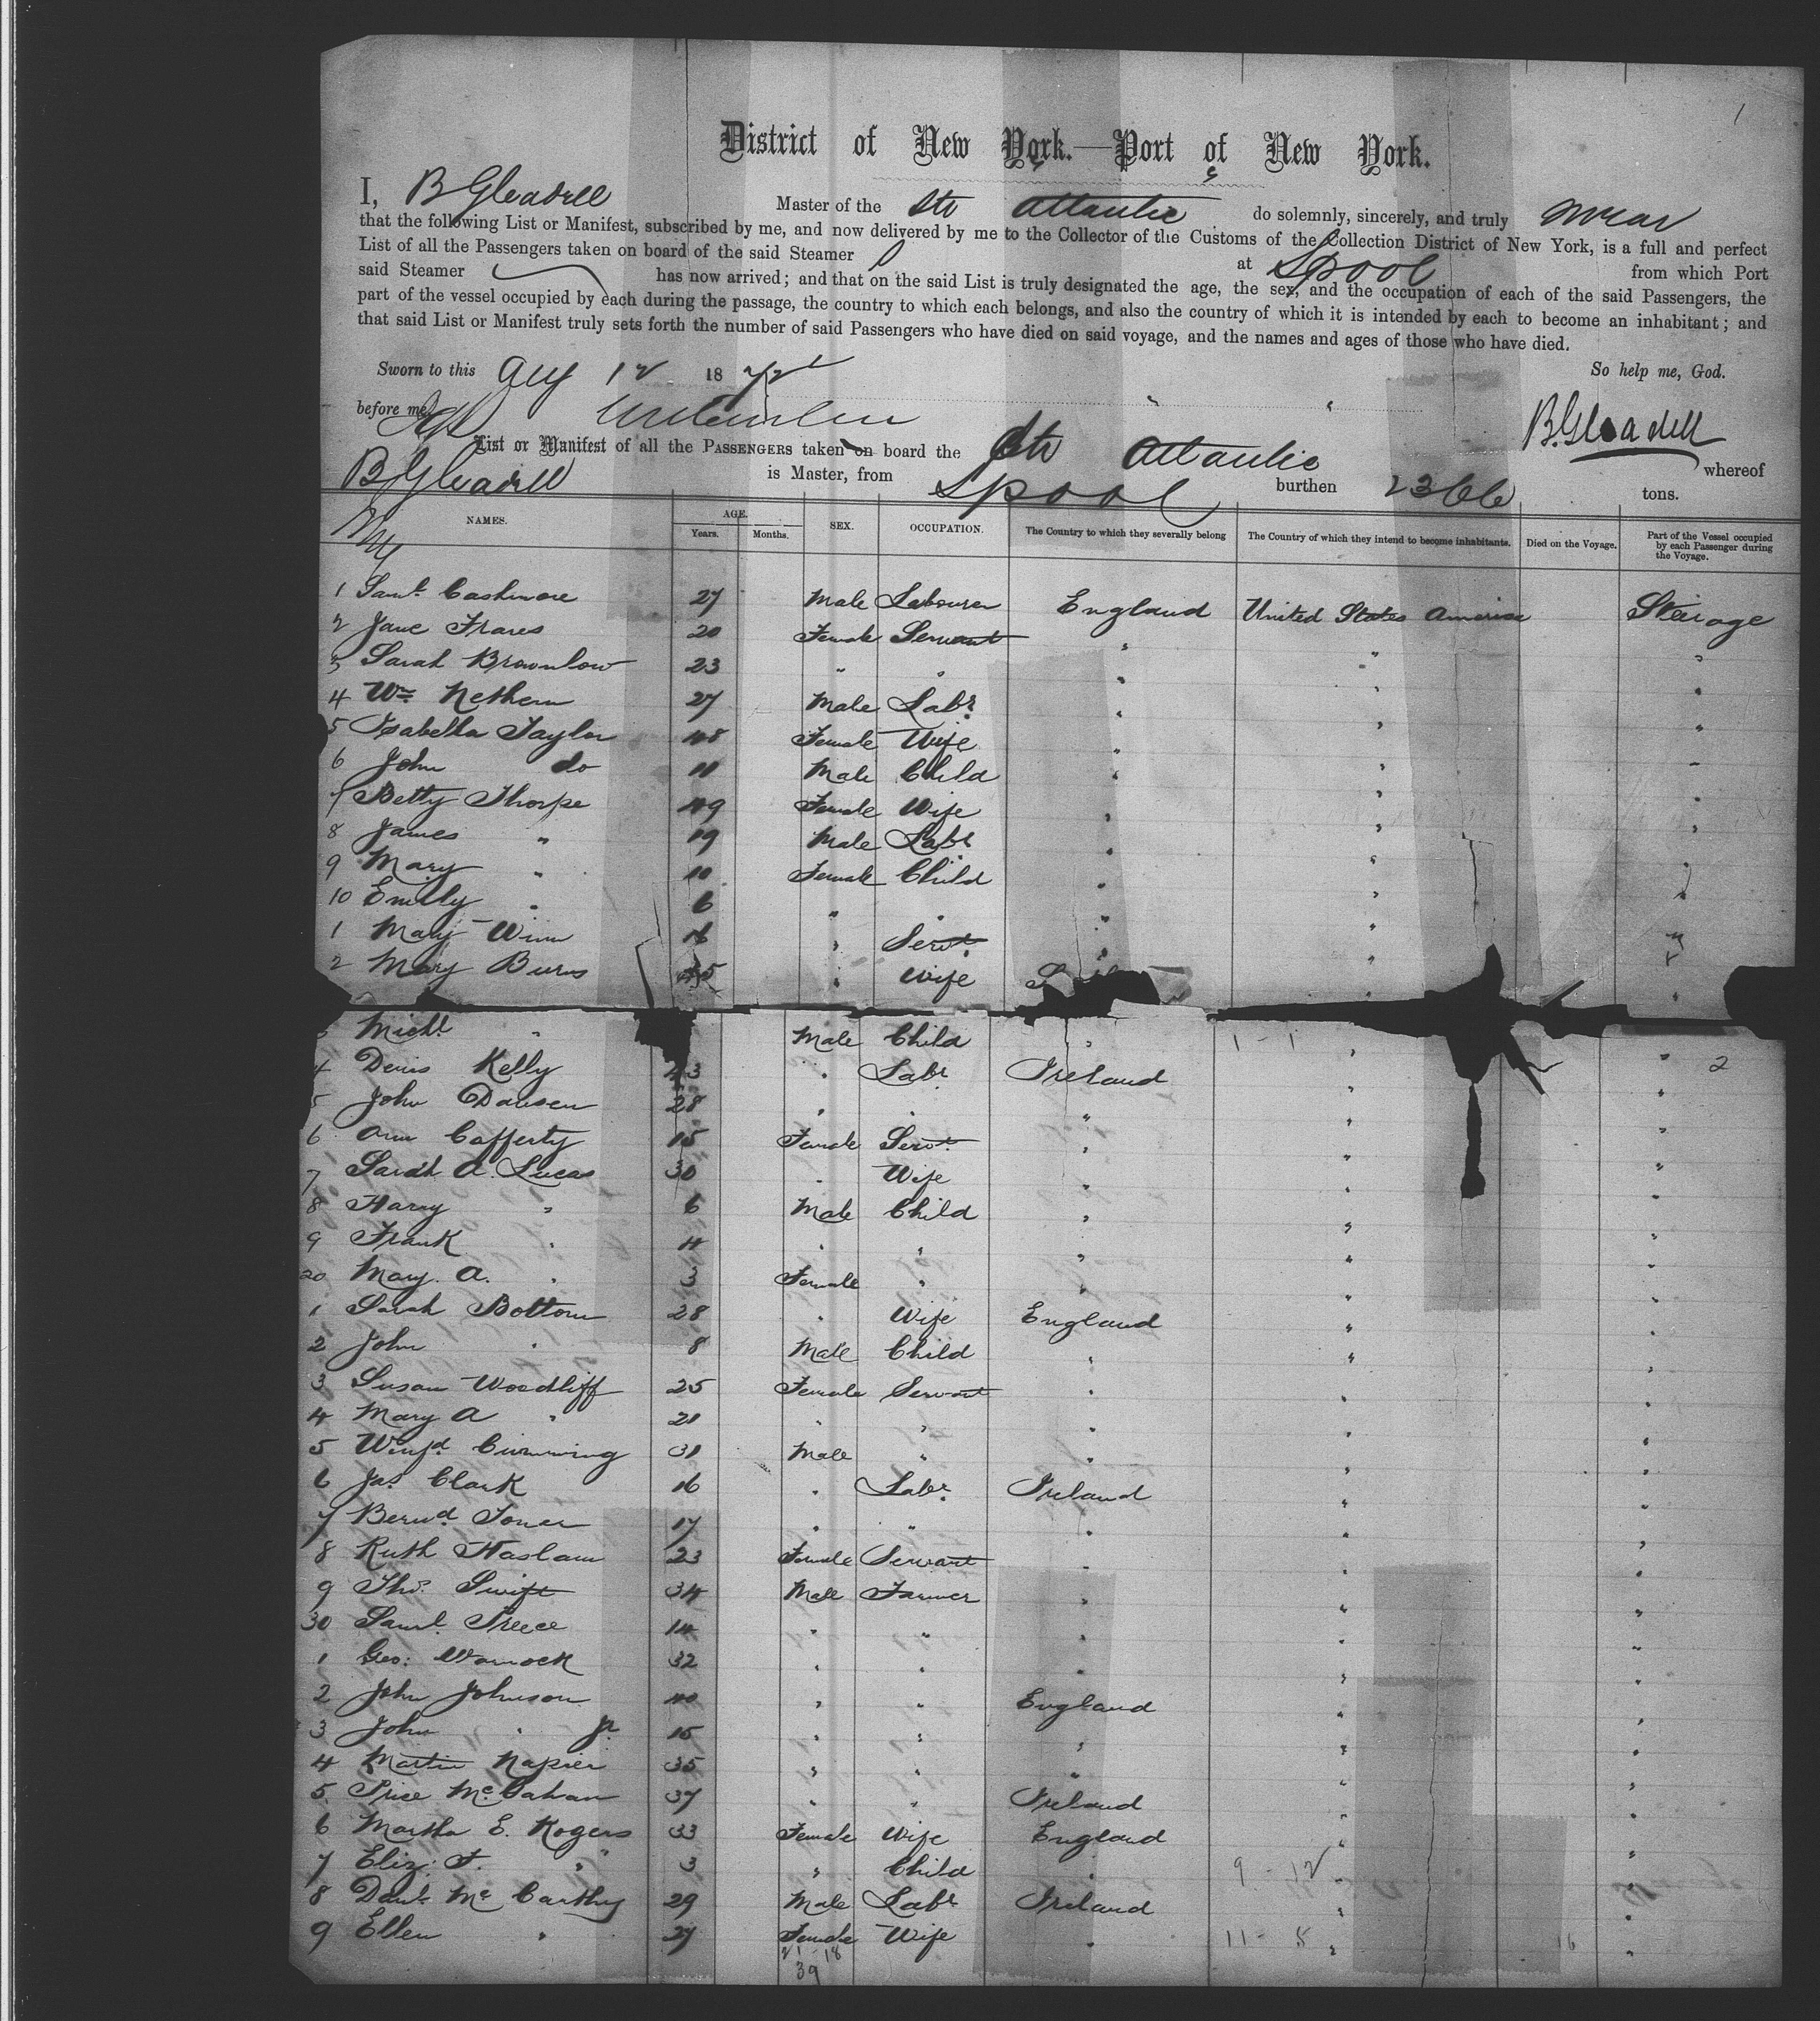 1
District of New York.—Port of New York.
I, B Gleadell Master of the Str Atlantic do solemnly, sincerely, and truly swear
that the following List or Manifest, subscribed by me, and now delivered by me to the Collector of the Customs of the Collection District of New York, is a full and perfect
List of all the Passengers taken on board of the said Steamer at Lpool from which Port
said Steamer has now arrived; and that on the said List is truly designated the age, the sex, and the occupation of each of the said Passengers, the
part of the vessel occupied by each during the passage, the country to which each belongs, and also the country of which it is intended by each to become an inhabitant; and
that said List or Manifest truly sets forth the number of said Passengers who have died on said voyage, and the names and ages of those who have died.
Sworn to this Aug 12 1872 So help me, God.
before me B. Gleadell
List or Manifest of all the PASSENGERS taken on board the Str Atlantic whereof
B Gleadell is Master, from Lpool burthen 2366 tons.
NAMES. AGE. Years. Months. SEX. OCCUPATION. The Country to which they severally belong The Country of which they intend to become inhabitants. Died on the Voyage. Part of the Vessel occupied by each Passenger during the Voyage.
NY
1 Saml. Cashmore 27 Male Labourer England United States America Steirage
2 Jane Frares 20 Female Servant " " "
3 Sarah Brownlow 23 " " " " "
4 Wm Nethern 27 Male Labr " " "
5 Isabella Taylor 48 Female Wife " " "
6 John do 11 Male Child " " "
7 Betty Thorpe 49 Female Wife " " "
8 James " 19 Male Labr " " "
9 Mary " 10 Female Child " " "
10 Emily " 6 " " " " "
1 Mary Winn 16 " Servt " " "
2 Mary Burns 45 " Wife "
Michl " Male Child " 1-1 " "
4 Denis Kelly 43 " Labr Ireland " " 2
5 John Dausen 28 " " " " "
6 Ann Cafferty 15 Female Servt " " "
7 Sarah A. Lucas 30 " Wife " " "
8 Harry " 6 Male Child " " "
9 Frank " 4 " " " " "
20 Mary A. " 3 Female " " " "
1 Sarah Bottom 28 " Wife England " "
2 John " 8 Male Child " " "
3 Susan Woodliff 25 Female Servant " " "
4 Mary A " 21 " " " " "
5 Winfd Cumming 31 Male " " " "
6 Jas. Clark 16 " Labr Ireland " "
7 Bernd Toner 17 " " " " "
8 Ruth Haslam 23 Female Servant " " "
9 Thos. Swift 34 Male Farmer " " "
30 Saml. Preece 14 " " " " "
1 Geo: Warnock 32 " " " " "
2 John Johnson 40 " " England " "
3 John " Jr 15 " " " " "
4 Martin Napier 35 " " " " "
5 Price McGahan 37 " " Ireland " "
6 Martha E. Rogers 33 Female Wife England " "
7 Eliz. F. " 3 " Child " 9-12 " "
8 Danl. McCarthy 29 Male Labr Ireland " "
9 Ellen " 27 Female Wife " 11-5 " 16 "
21-18
39